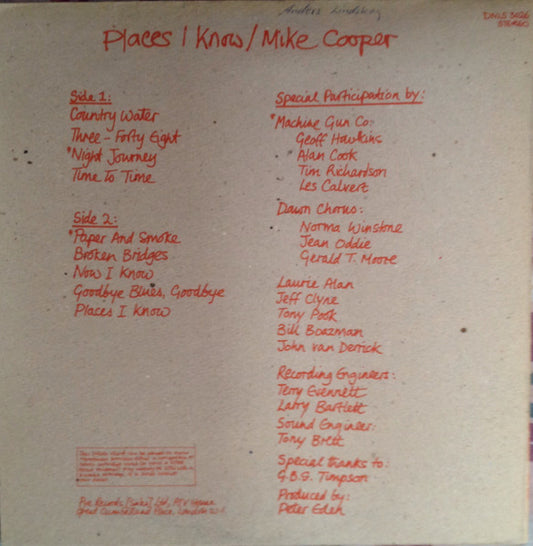 Anders Lindskog
DNLS 3026
STEREO
Places I Know/Mike Cooper
Side 1:
Country Water
Three-Forty Eight
*Night Journey
Time To Time
Side 2:
*Paper And Smoke
Broken Bridges
Now I Know
Goodbye Blues, Goodbye
Places I Know
Special Participation by:
*Machine Gun Co:
Geoff Hawkins
Alan Cook
Tim Richardson
Les Calvert
Dawn Chorus:
Norma Winstone
Jean Oddie
Gerald T. Moore
Laurie Alan
Jeff Clyne
Tony Pook
Bill Boazman
John van Derrick
Recording Engineers:
Terry Evennett
Larry Bartlett
Sound Engineer:
Tony Brett
Special thanks to:
G.B.G. Timpson
Produced by:
Peter Eden
This stereo record can be played on mono
Pye Records (Sales) Ltd, ATV House
Great Cumberland Place, London W.1.